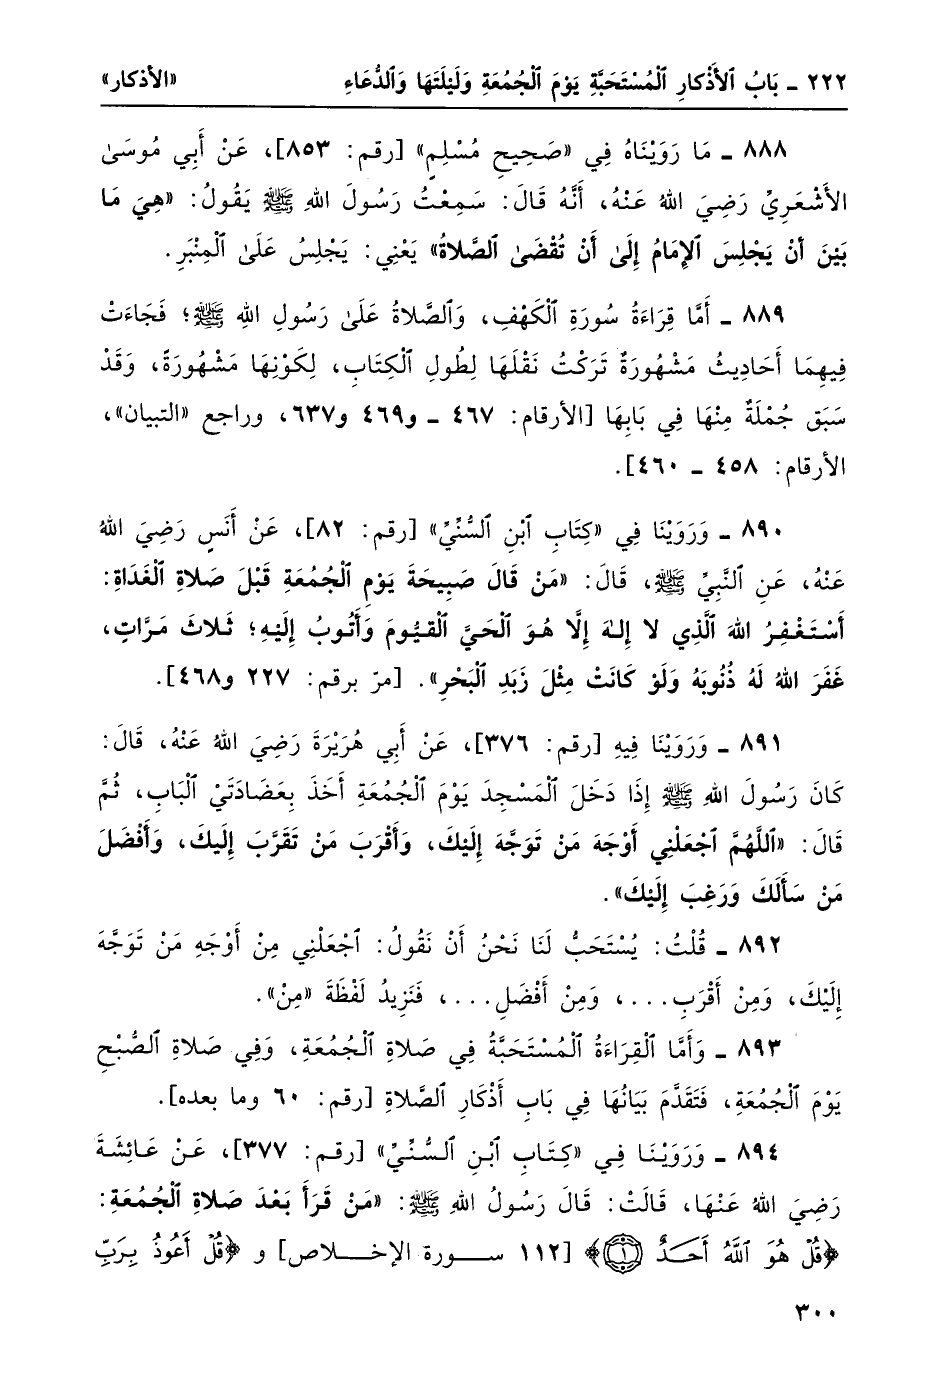 ٢٢٢ ـ بَابُ ٱلأَذْكارِ ٱلْمُسْتَحَبَّةِ يَوْمَ ٱلْجُمُعَةِ وَلَيْلَتَهَا وَٱلدُّعَاءِ «الأذكار»
٨٨٨ ـ مَا رَوَيْنَاهُ فِي «صَحِيحِ مُسْلِمٍ» [رقم: ٨٥٣]، عَنْ أَبِي مُوسَىٰ
الأَشْعَرِيِّ رَضِيَ اللهُ عَنْهُ، أَنَّهُ قَالَ: سَمِعْتُ رَسُولَ اللهِ ﷺ يَقُولُ: «هِيَ مَا
بَيْنَ أَنْ يَجْلِسَ ٱلإِمَامُ إِلَىٰ أَنْ تُقْضَىٰ ٱلصَّلاةُ» يَعْنِي: يَجْلِسُ عَلَىٰ ٱلْمِنْبَرِ.
٨٨٩ ـ أَمَّا قِرَاءَةُ سُورَةِ ٱلْكَهْفِ، وَٱلصَّلاةُ عَلَىٰ رَسُولِ اللهِ ﷺ؛ فَجَاءَتْ
فِيهِمَا أَحَادِيثُ مَشْهُورَةٌ تَرَكْتُ نَقْلَهَا لِطُولِ ٱلْكِتَابِ، لِكَوْنِهَا مَشْهُورَةً، وَقَدْ
سَبَقَ جُمْلَةٌ مِنْهَا فِي بَابِهَا [الأرقام: ٤٦٧ ـ و٤٦٩ و٦٣٧، وراجع «التبيان»،
الأرقام: ٤٥٨ ـ ٤٦٠].
٨٩٠ ـ وَرَوَيْنَا فِي «كِتَابِ ٱبْنِ ٱلسُّنِّيِّ» [رقم: ٨٢]، عَنْ أَنَسٍ رَضِيَ اللهُ
عَنْهُ، عَنِ ٱلنَّبِيِّ ﷺ، قَالَ: «مَنْ قَالَ صَبِيحَةَ يَوْمِ ٱلْجُمُعَةِ قَبْلَ صَلاةِ ٱلْغَدَاةِ:
أَسْتَغْفِرُ اللهَ ٱلَّذِي لا إِلهَ إِلَّا هُوَ ٱلْحَيَّ ٱلْقيُّومَ وَأَتُوبُ إِلَيْهِ؛ ثَلاثَ مَرَّاتٍ،
غَفَرَ اللهُ لَهُ ذُنُوبَهُ وَلَوْ كَانَتْ مِثْلَ زَبَدِ ٱلْبَحْرِ». [مرّ برقم: ٢٢٧ و٤٦٨].
٨٩١ ـ وَرَوَيْنَا فِيهِ [رقم: ٣٧٦]، عَنْ أَبِي هُرَيْرَةَ رَضِيَ اللهُ عَنْهُ، قَالَ:
كَانَ رَسُولَ اللهِ ﷺ إِذَا دَخَلَ ٱلْمَسْجِدَ يَوْمَ ٱلْجُمُعَةِ أَخَذَ بِعَضَادَتَيْ ٱلْبَابِ، ثُمَّ
قَالَ: «ٱللَّهُمَّ ٱجْعَلْنِي أَوْجَهَ مَنْ تَوَجَّهَ إِلَيْكَ، وَأَقْرَبَ مَنْ تَقَرَّبَ إِلَيكَ، وَأَفْضَلَ
مَنْ سَأَلَكَ وَرَغِبَ إِلَيْكَ».
٨٩٢ ـ قُلْتُ: يُسْتَحَبُّ لَنَا نَحْنُ أَنْ نَقُولُ: ٱجْعَلْنِي مِنْ أَوْجَهِ مَنْ تَوَجَّهَ
إِلَيْكَ، وَمِنْ أَقْرَبِ...، وَمِنْ أَفْضَلِ...، فَنَزِيدُ لَفْظَةَ «مِنْ».
٨٩٣ ـ وَأَمَّا ٱلْقِرَاءَةُ ٱلْمُسْتَحَبَّةُ فِي صَلاةِ ٱلْجُمُعَةِ، وَفِي صَلاةِ ٱلصُّبْحِ
يَوْمَ ٱلْجُمُعَةِ، فَتَقَدَّمَ بَيَانُهَا فِي بَابِ أَذْكَارِ ٱلصَّلاةِ [رقم: ٦٠ وما بعده].
٨٩٤ ـ وَرَوَيْنَا فِي «كِتَابِ ٱبْنِ ٱلسُّنِّيِّ» [رقم: ٣٧٧]، عَنْ عَائِشَةَ
رَضِيَ اللهُ عَنْهَا، قَالَتْ: قَالَ رَسُولُ اللهِ ﷺ: «مَنْ قَرَأَ بَعْدَ صَلاةِ ٱلْجُمُعَةِ:
﴿قُلْ هُوَ ٱللَّهُ أَحَدٌ ۝١﴾ [١١٢ سورة الإخلاص] و ﴿قُلْ أَعُوذُ بِرَبِّ
٣٠٠